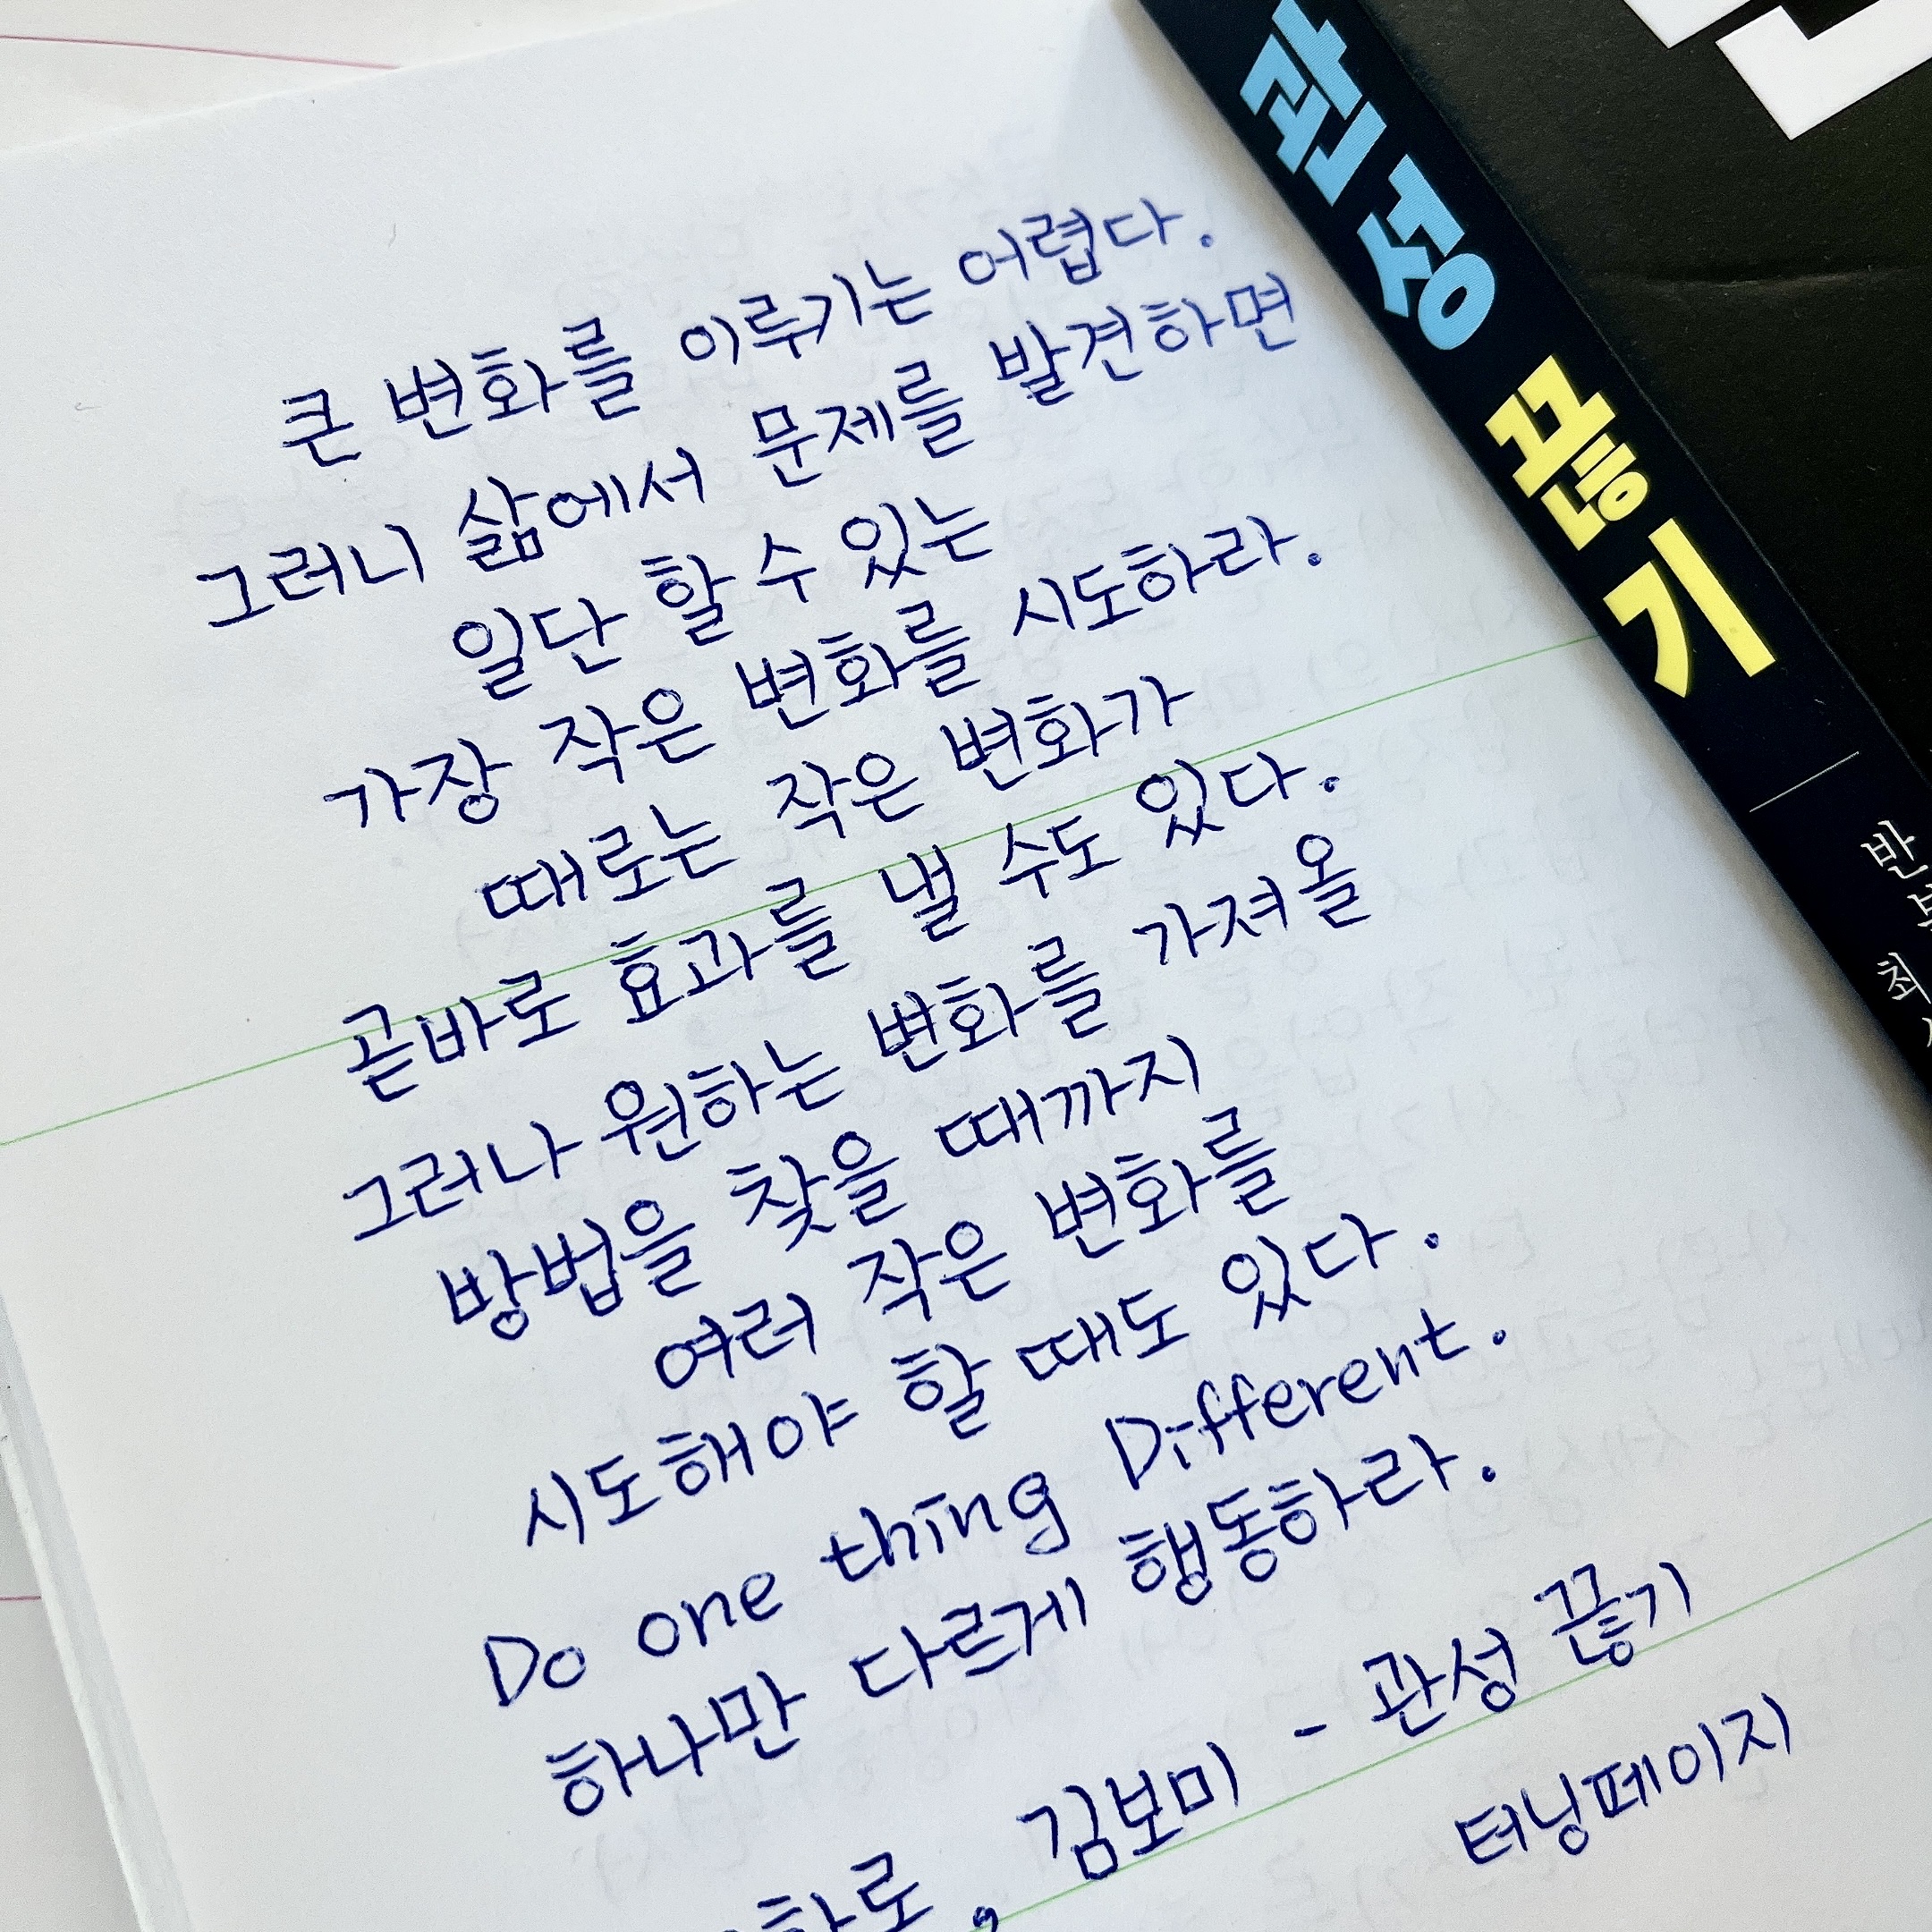 큰 변화를 이루기는 어렵다.
그러니 삶에서 문제를 발견하면
일단 할 수 있는
가장 작은 변화를 시도하라.
때로는 작은 변화가
곧바로 효과를 낼 수도 있다.
그러나 원하는 변화를 가져올
방법을 찾을 때까지
여러 작은 변화를
시도해야 할 때도 있다.
Do one thing Different.
하나만 다르게 행동하라.
김보미 - 관성 끊기
터닝페이지
관성 끊기